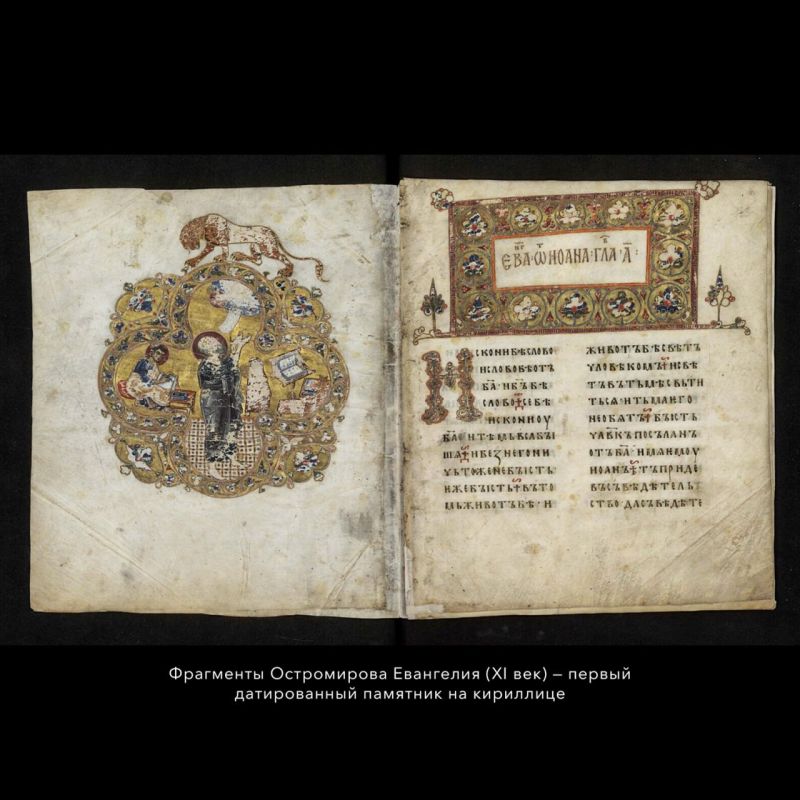 ЕВА҃Г · Ѿ ИОАНА · ГЛА҃В · А҃ ·
ИСКОНИ БѢ СЛОВО
И СЛОВО БѢ ОТЪ
Б҃А · И Б҃Ъ БѢ
СЛОВО · СЕ БѢ
ИСКОНИ ОУ
Б҃А · И ТѢМЬ ВСА БЫ
ША · И БЕЗ НЕГО НИ
ЧЬТОЖЕ НЕ БЫСТЬ
ИЖЕ БЫСТЬ · ВЪ ТО
МЬ ЖИВОТЪ БѢ · И
ЖИВОТЪ БѢ СВѢТЪ
ЧЛОВѢКОМЪ · И СВѢ
ТЪ ВЪ ТЬМѢ СВЬТИ
ТЬСѦ · И ТЬМА ѤГО
НЕ ОБѨТЪ · БЫСТЬ
ЧЛ҃ВКЪ ПОСЪЛАНЪ
ОТЪ Б҃А · ИМѦ ѤМОУ
ИОАНЪ · ТЪ ПРИДЕ
ВЪ СЪВѢДѢТЕЛЬ
СТВО · ДА СЪВѢДѢТЕ
Фрагменты Остромирова Евангелия (XI век) — первый
датированный памятник на кириллице